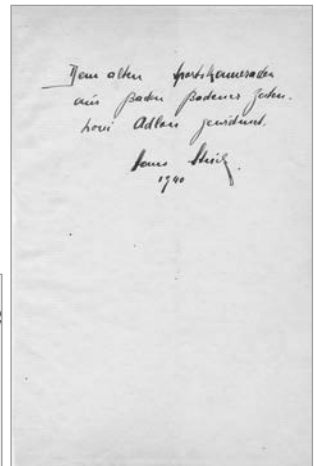 Dem alten Sportskameraden
aus Baden Badener Zeiten.
Loui Adlon gewidmet.
Hans Stuck
1940